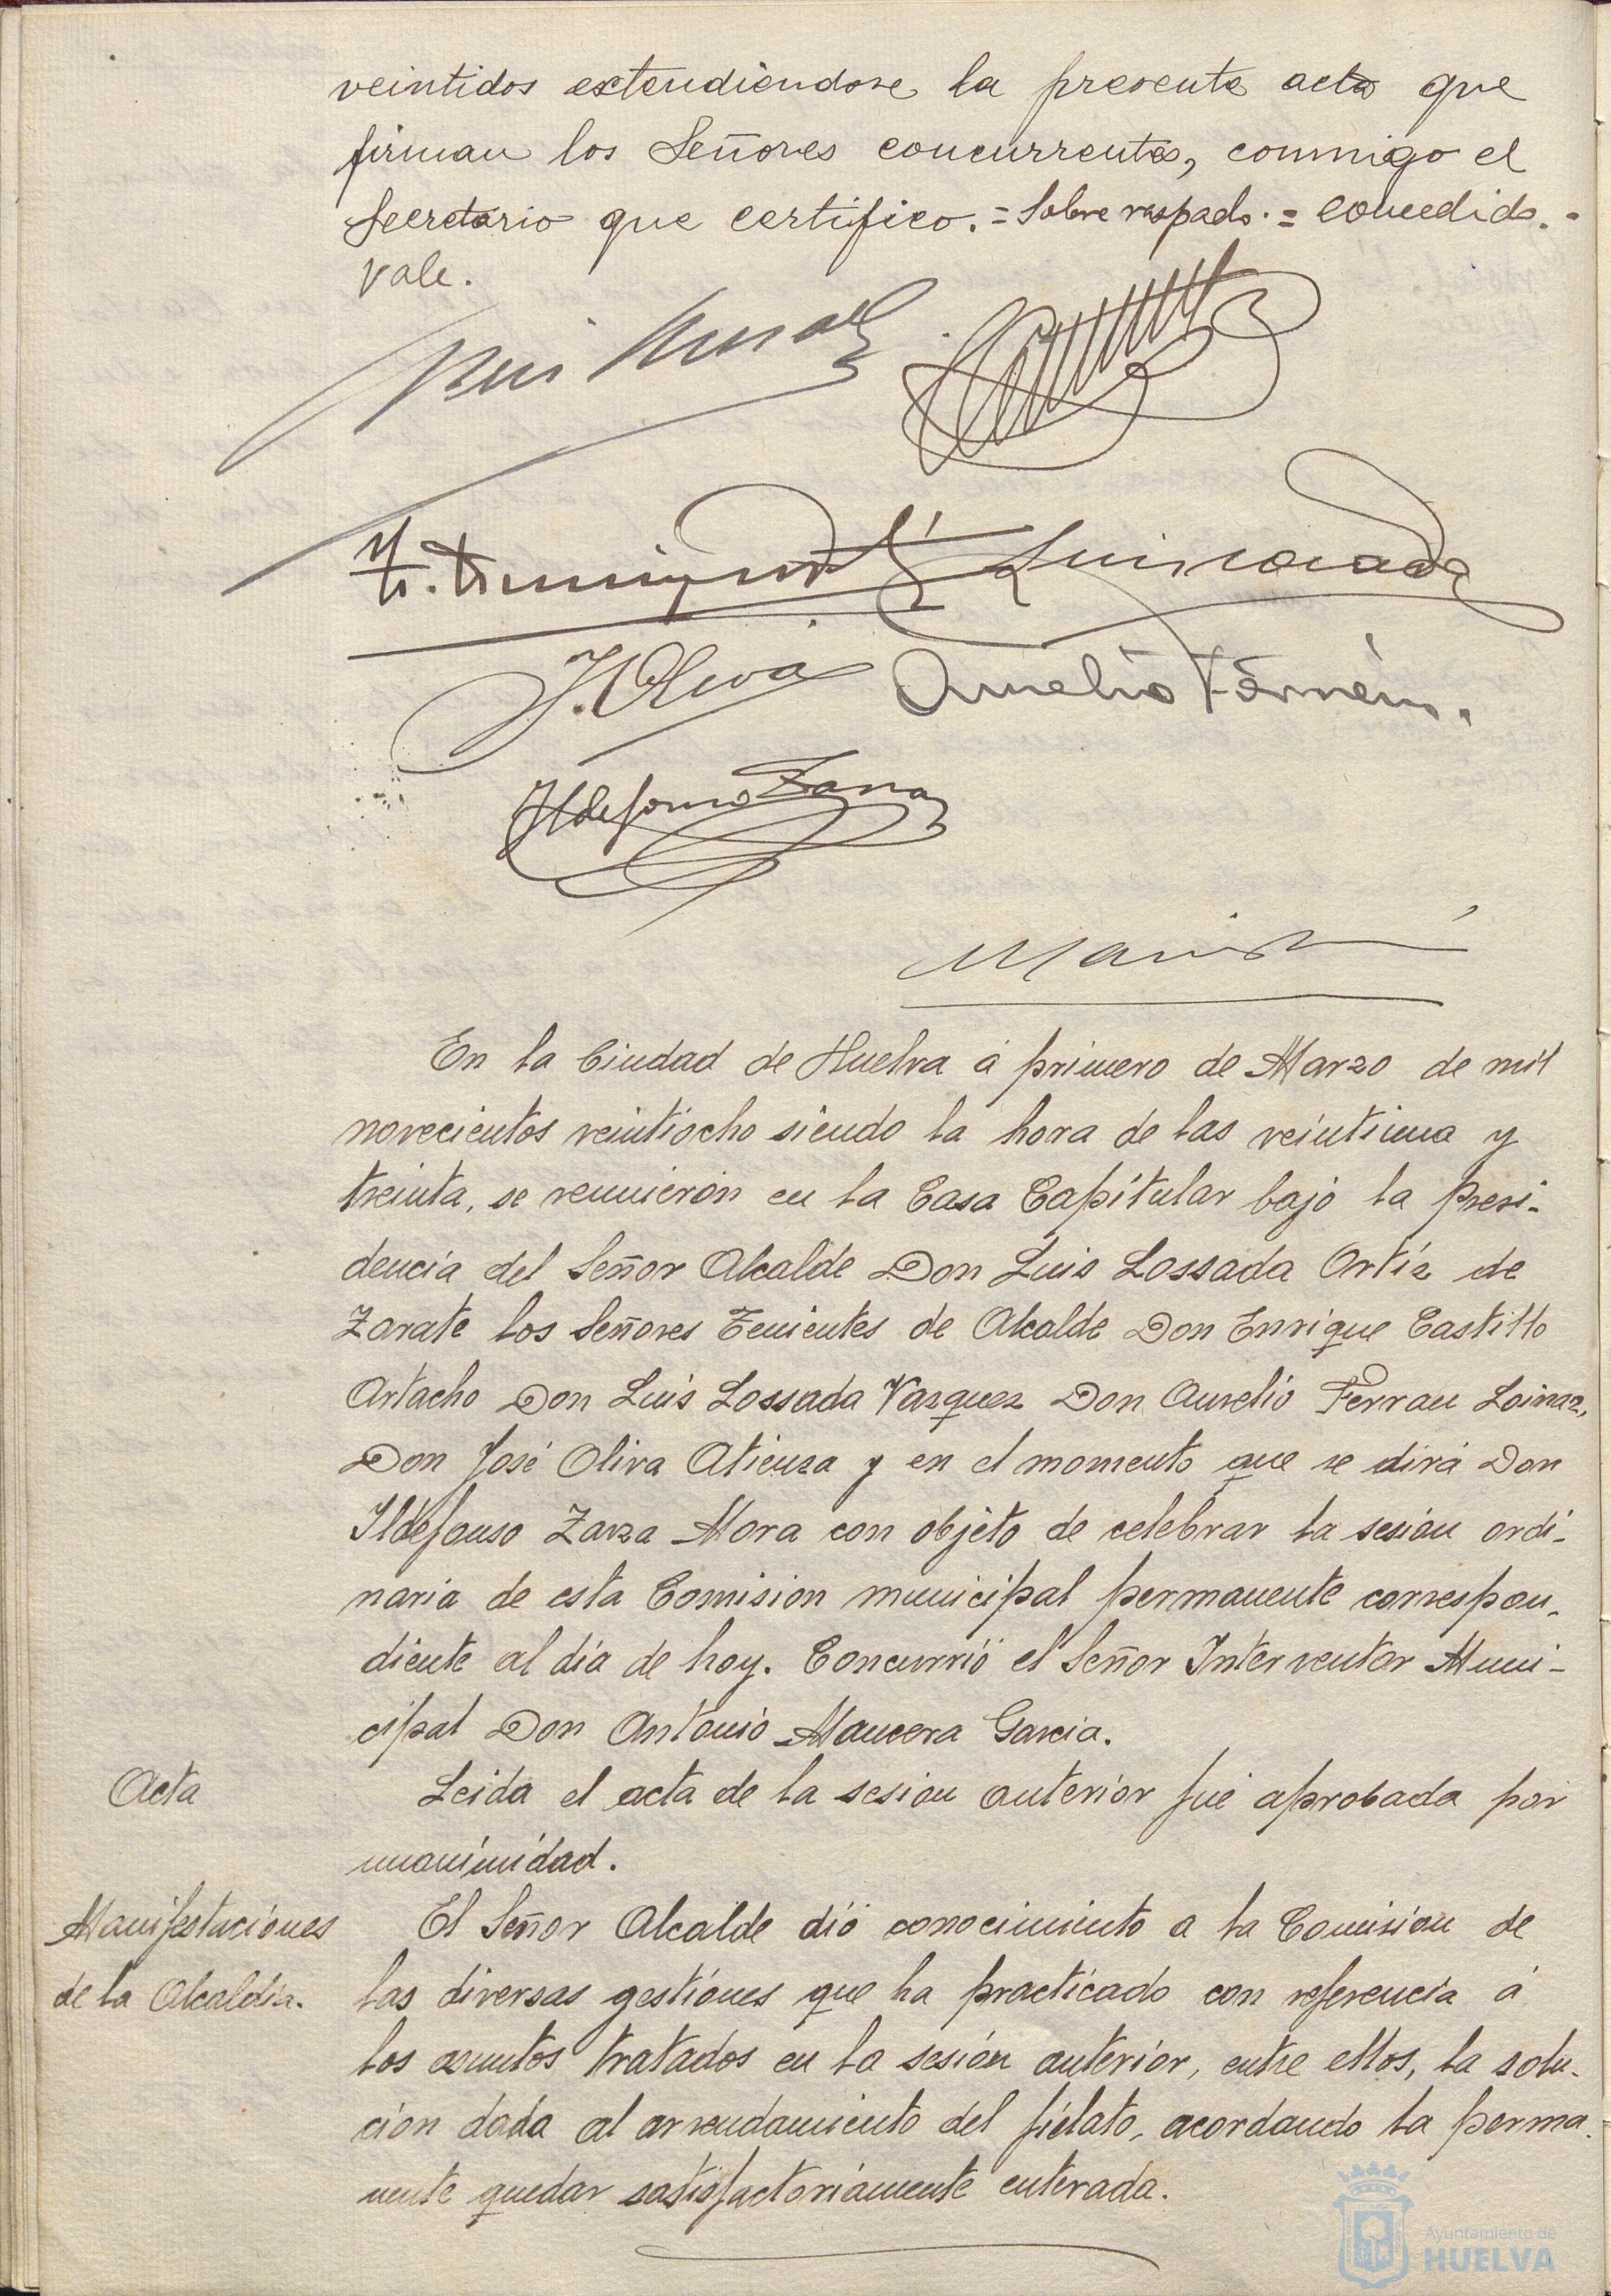 veintidos extendiendose la presente acta que
firman los Señores concurrentes, conmigo el
Secretario que certifico. = Sobre raspado. = concedido. =
vale.
J. Oliva Aurelio Ferrán.
Ildefonso Zarza
En la Ciudad de Huelva á primero de Marzo de mil
novecientos veintiocho siendo la hora de las veintiuna y
treinta, se reunieron en la Casa Capitular bajo la presi-
dencia del Señor Alcalde Don Luis Lossada Ortiz de
Zarate los Señores Tenientes de Alcalde Don Enrique Castillo
Artacho Don Luis Lossada Vazquez Don Aurelio Ferran Loinaz,
Don José Oliva Atienza y en el momento que se dirá Don
Ildefonso Zarza Mora con objeto de celebrar la sesion ordi-
naria de esta Comision municipal permanente correspon-
diente al día de hoy. Concurrió el Señor Interventor Muni-
cipal Don Antonio Mancera Garcia.
Acta
Leida el acta de la sesion anterior fué aprobada por
unanimidad.
Manifestaciones
de la Alcaldía.
El Señor Alcalde dió conocimiento a la Comision de
las diversas gestiones que ha practicado con referencia á
los asuntos tratados en la sesión anterior, entre ellos, la solu-
cion dada al arrendamiento del fielato, acordando la perma-
nente quedar satisfactoriamente enterada.
Ayuntamiento de
HUELVA